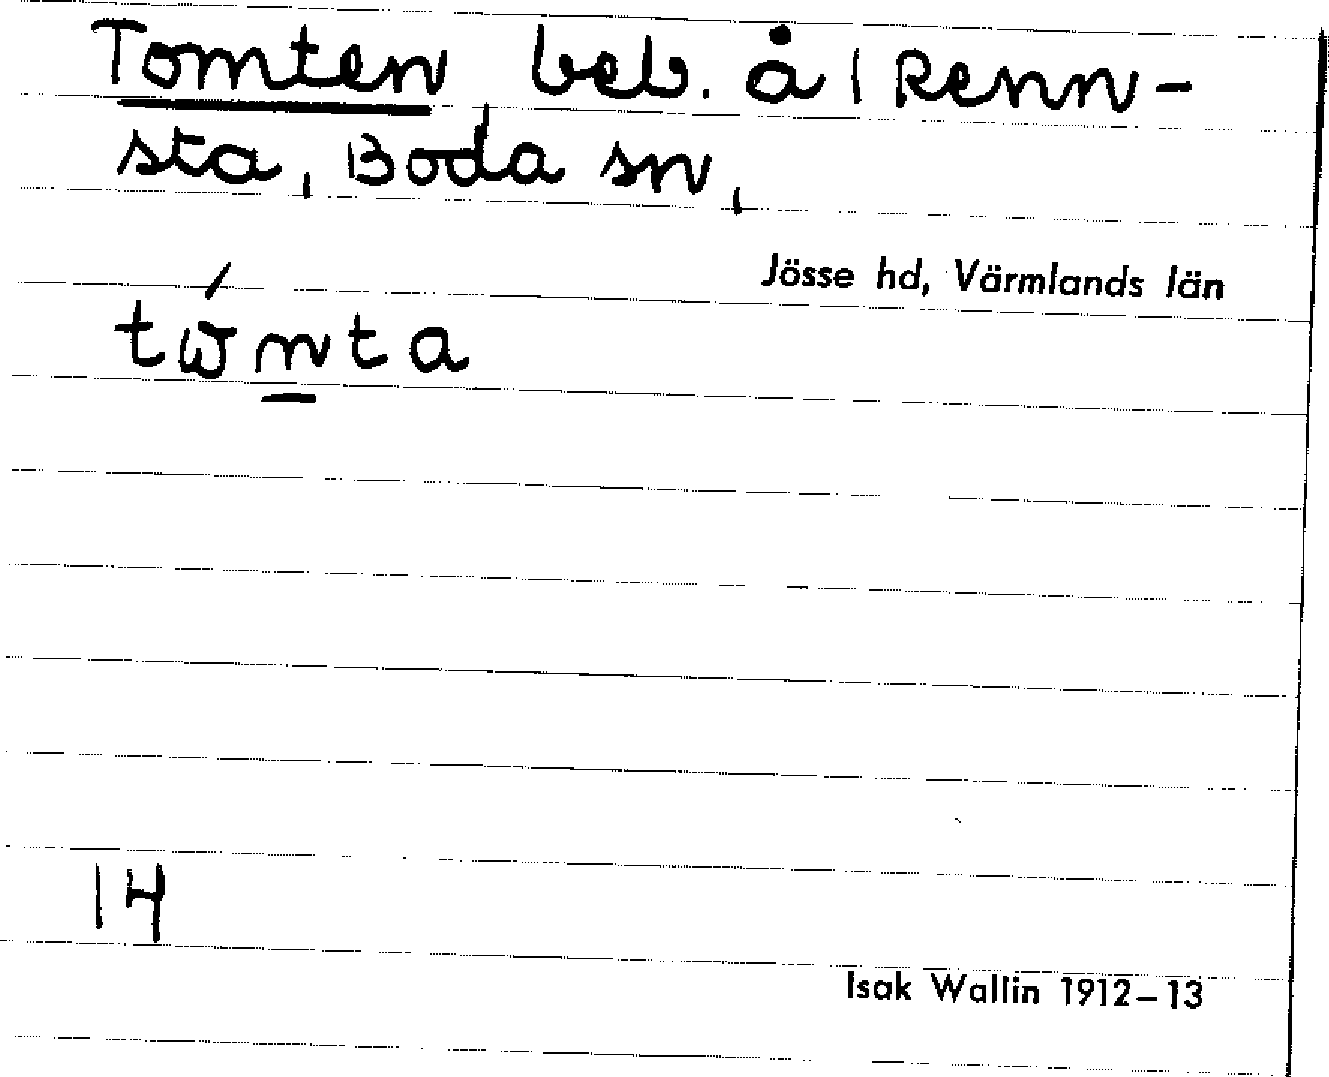 Tomten beb. å 1 Renn-
sta, Boda sn,
Jösse hd, Värmlands län
tώn̲ta
14
Isak Wallin 1912–13